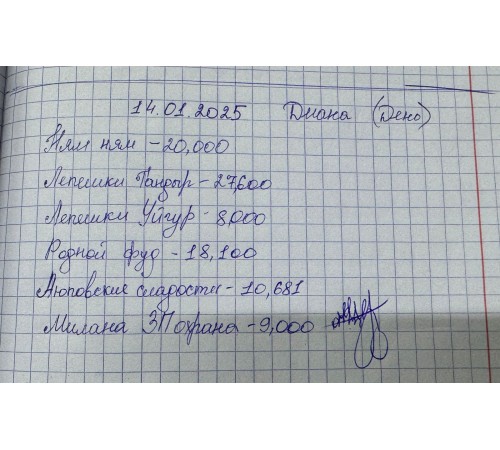 14.01.2025 Диана (День)
Ням ням - 20,000
Лепешки Тандыр - 27,600
Лепешки Уйгур - 8,000
Родной фуд - 18,100
Аюповские сладости - 10,681
Милана ЗП охрана - 9,000